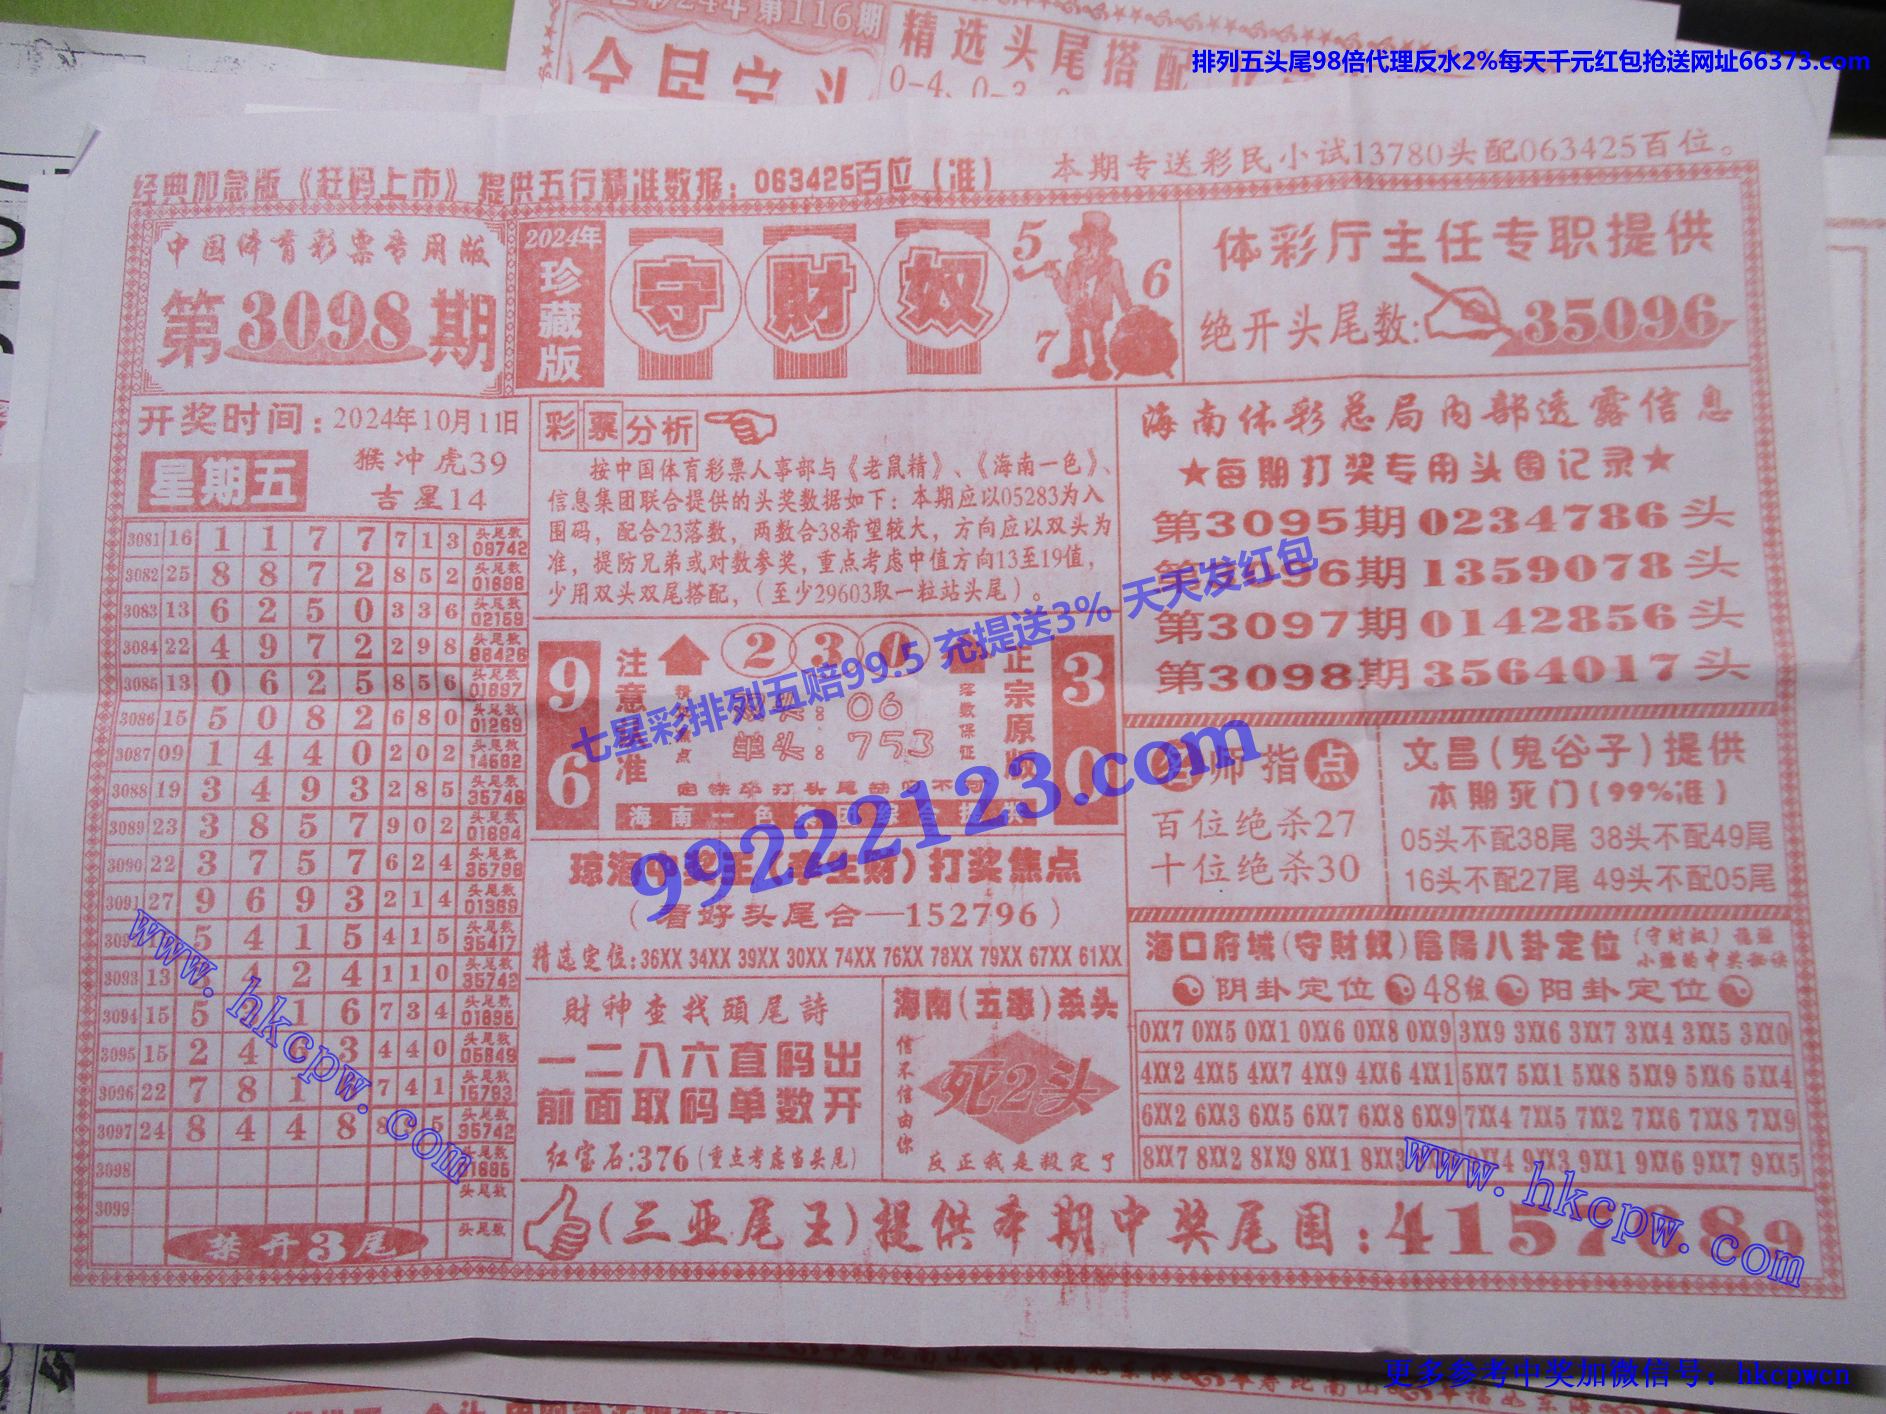 排列五头尾98倍代理反水2%每天千元红包抢送网址66373.com
彩24年第116期
精选头尾搭配
全民定头
经典加急版《赶码上市》提供五行精准数据：063425百位（准）
本期专送彩民小试13780头配063425百位。
中国体育彩票专用版
第3098期
2024年
珍藏版
守財奴
5
6
7
体彩厅主任专职提供
绝开头尾数:35096
开奖时间：2024年10月11日
星期五
猴冲虎39
吉星14
3081 16 1 1 7 7 7 1 3 头尾数 09742
3082 25 8 8 7 2 8 5 2 头尾数
3083 13 6 2 5 0 3 3 6 头尾数 02159
3084 22 4 9 7 2 2 9 8 头尾数
3085 13 0 6 2 5 8 5 6 头尾数 01697
3086 15 5 0 8 2 6 8 0 头尾数 01269
3087 09 1 4 4 0 2 0 2 头尾数
3088 19 3 4 9 3 2 8 5 头尾数 35746
3089 23 3 8 5 7 9 0 2 头尾数 01694
3090 22 3 7 5 7 6 2 4 头尾数
3091 27 9 6 9 3 2 1 4 头尾数
5 4 1 5 4 1 5 头尾数 35417
3093 13 4 2 4 1 1 0 头尾数 35742
3094 15 5 1 6 7 3 4 头尾数 01695
3095 15 2 4 6 3 4 4 0 头尾数 05849
3096 22 7 8 1 7 4 1 头尾数 15793
3097 24 8 4 4 8 8 5 头尾数 35742
3098 头尾数
3099 头尾数
禁开3尾
头尾数
彩票分析
按中国体育彩票人事部与《老鼠精》、《海南一色》、
信息集团联合提供的头奖数据如下：本期应以05283为入
围码，配合23落数，两数合38希望较大，方向应以双头为
准，提防兄弟或对数参奖，重点考虑中值方向13至19值，
少用双头双尾搭配，（至少29603取一粒站头尾）。
海南体彩总局内部透露信息
★每期打奖专用头围记录★
第3095期0234786头
第3096期1359078头
第3097期0142856头
第3098期3564017头
9
6
注意
准
2 3
双头：06
单头：753
落数保证
正宗原版
3
0
琼海中奖王（李生财）打奖焦点
（看好头尾合—152796）
精选定位:36XX 34XX 39XX 30XX 74XX 76XX 78XX 79XX 67XX 61XX
师指点
百位绝杀27
十位绝杀30
文昌（鬼谷子）提供
本期死门（99%准）
05头不配38尾 38头不配49尾
16头不配27尾 49头不配05尾
財神查找頭尾詩
一二八六直码出
前面取码单数开
红宝石:376（重点考虑当头尾）
海南（五毒）杀头
信不信由你
死2头
反正我是殺定了
海口府城(守財奴)陰陽八卦定位
阴卦定位 48组 阳卦定位
0XX7 0XX5 0XX1 0XX6 0XX8 0XX9 3XX9 3XX6 3XX7 3XX4 3XX5 3XX0
4XX2 4XX5 4XX7 4XX9 4XX6 4XX1 5XX7 5XX1 5XX8 5XX9 5XX6 5XX4
6XX2 6XX3 6XX5 6XX7 6XX8 6XX9 7XX4 7XX5 7XX2 7XX6 7XX8 7XX9
8XX7 8XX2 8XX9 8XX1 8XX3 9XX3 9XX1 9XX6 9XX7 9XX5
（三亚尾王）提供本期中奖尾围：4157689
七星彩排列五赔99.5 充提送3% 天天发红包
99222123.com
www.hkcpw.com
www.hkcpw.com
更多参考中奖加微信号：hkcpwcn